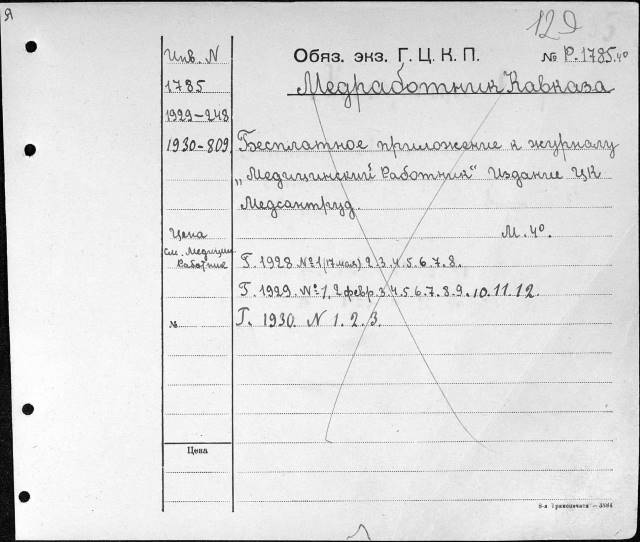 Я
12д
Инв. N
Обяз. экз. Г. Ц. К. П.
№ Р.1785.4º
1785
Медработник Кавказа
1929-248
1930-809
Бесплатное приложение к журналу
„Медицинский Работник" Издание ЦК
Медсантруд.
Цена
см. Медицин
Работник
М. 4º.
Г. 1928 №1 (17 мая) 2.3.4.5.6.7.8.
Г. 1929. №1, 2 февр. 3.4.5.6.7.8.9.10.11.12.
№
Г. 1930. N 1. 2. 3.
Цена
8-я Транспечати — 3584